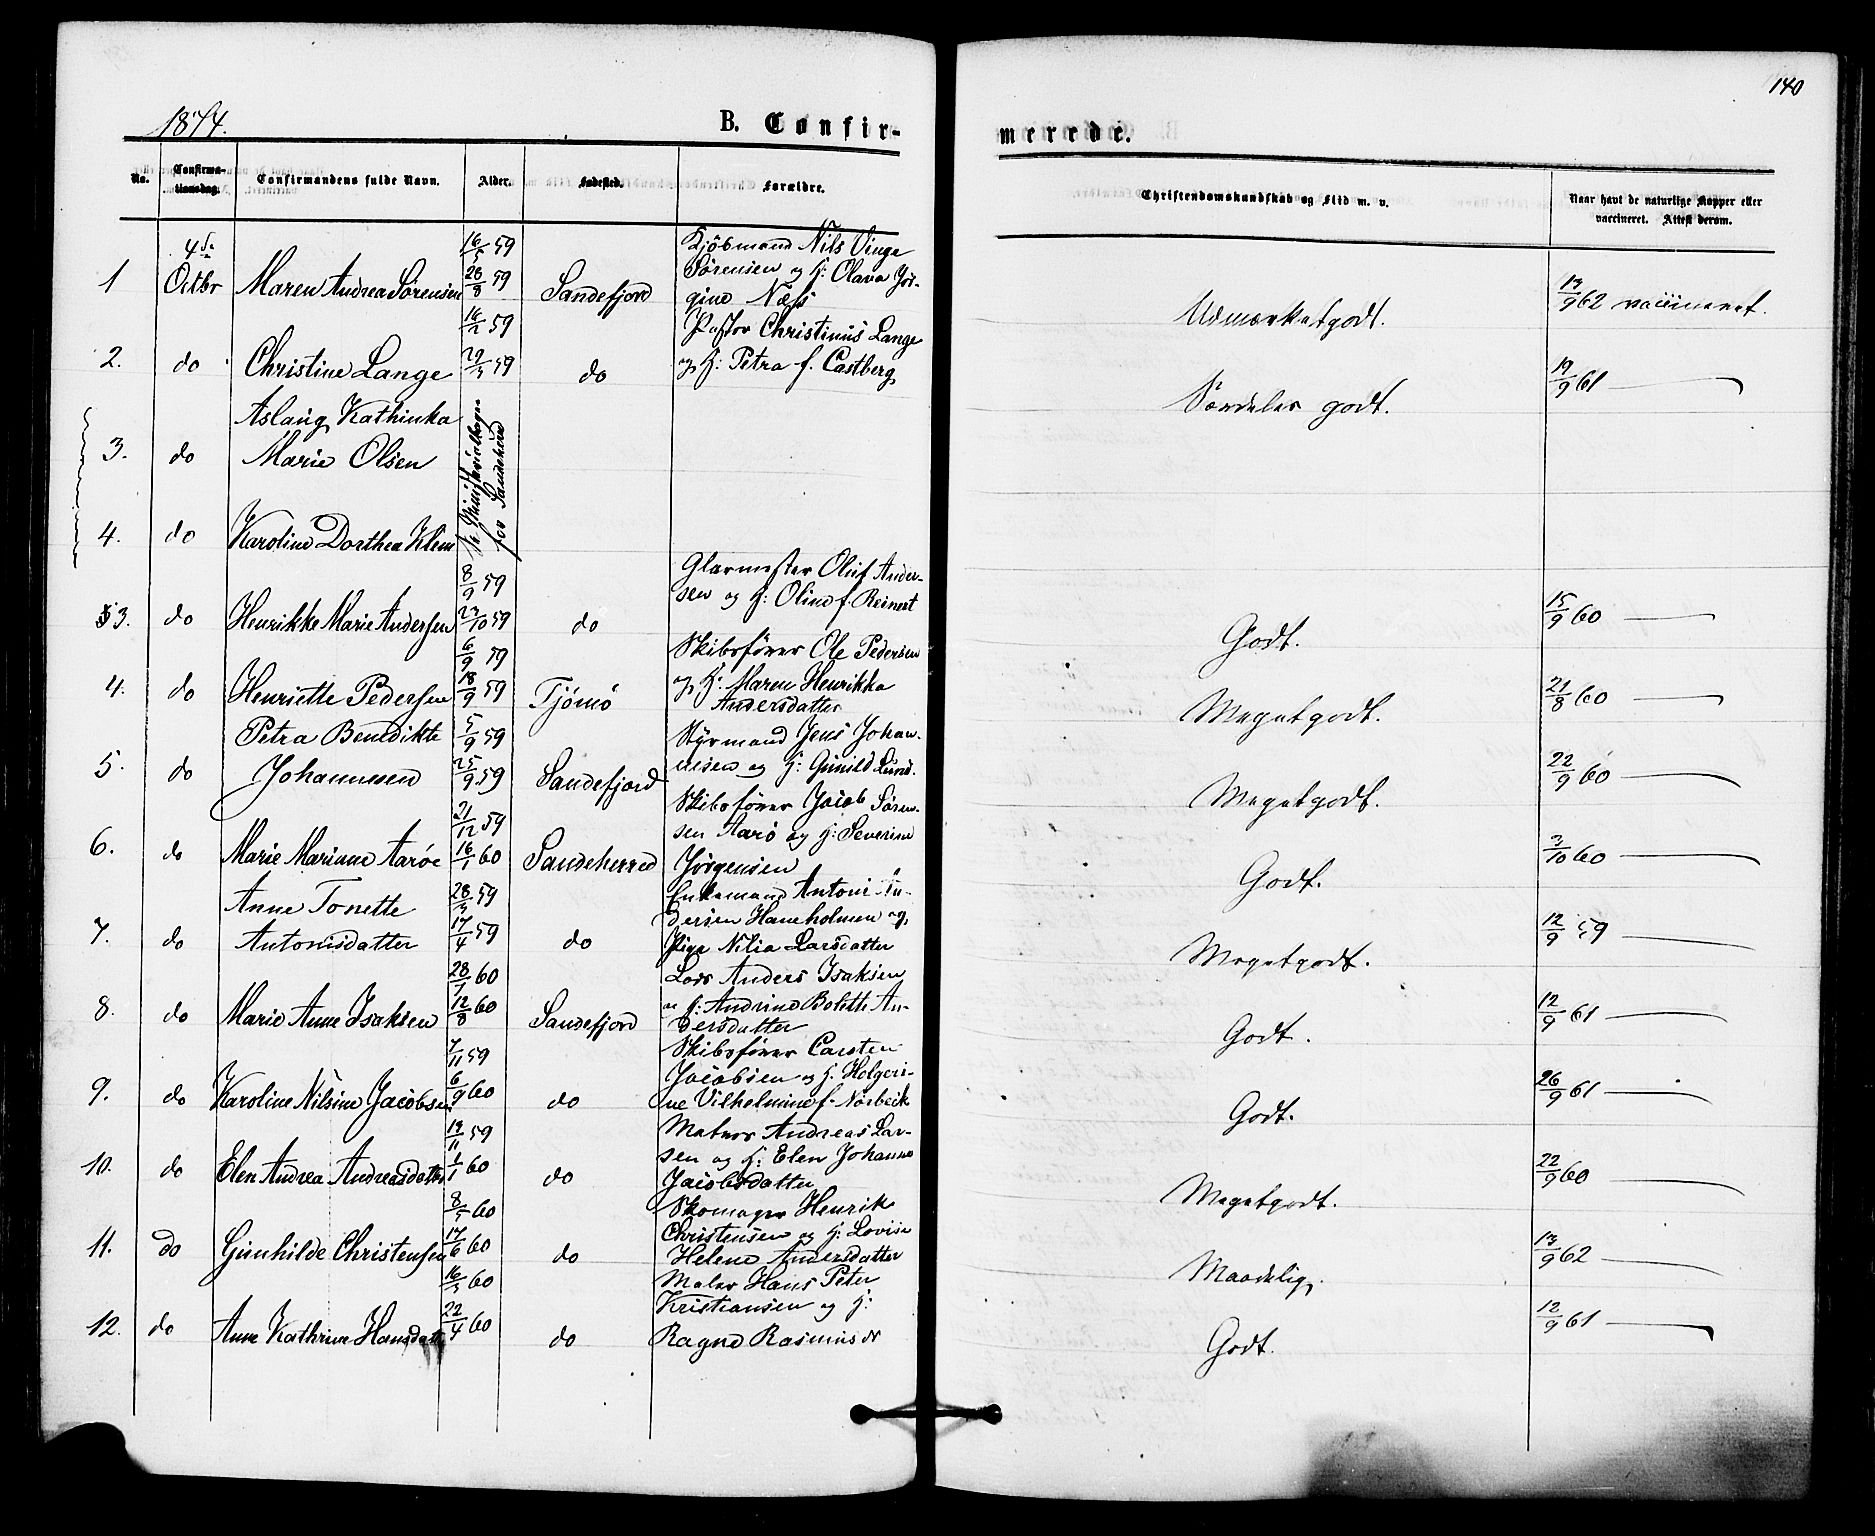 140
1874.
B. Confir-
merede.
No.
Confirma-
tionsdag.
Confirmandens fulde Navn.
Alder.
Fødested.
Forældre.
Christendomskundskab og Flid m. v.
Naar havt de naturlige Kopper eller
vaccineret. Attest derom.
1 4de Octbr Maren Andrea Sørensen 16/5 59 28/8 59 Sandefjord
Kjøbmand Nils Vinge
Sørensen og H: Olava Jør-
gine Næss
Udmærketgodt. 13/9 62 vaccineret.
2. do Christine Lange 16/2 59 29/3 59 do
Pastor Christinus Lange
og H: Petra f. Castberg
Særdeles godt. 19/9 61
3. do Aslaug Kathinka
Marie Olsen
4. do Karoline Dorthea Klem
Ministerialbogen
for Sandeherred
3. do Henrikke Marie Andersen 8/9 59 23/10 59 do
Glarmester Oluf Ander-
sen og H: Oline f. Reinert
Godt. 15/9 60
4. do Henriette Pedersen 6/9 59 18/9 59 Tjömö
Skibsfører Ole Pedersen
og H: Maren Henrikka
Andersdatter
Megetgodt. 21/8 60
5. do Petra Benedikte
Johannesen 5/9 59 25/9 59 Sandefjord
Styrmand Jens Johan-
nesen og H: Gunild Lund.
Megetgodt. 22/9 60
6. do Marie Marinne Aarøe 21/12 59 16/1 60 Sandeherred
Skibsfører Jacob Søren-
sen Aarö og H: Severine
Jørgensen
Godt. 3/10 60
7. do Anne Tonette
Antonisdatter 28/3 59 17/4 59 do
Enkemand Antoni An-
dersen Haneholmen og
Pige Nilia Larsdatter
Megetgodt. 12/9 59
8. do Marie Anne Isaksen 28/7 60 12/8 60 Sandefjord
Lods Anders Isaksen
og H: Andrine Bolette An-
dersdatter
Godt. 12/9 61
9. do Karoline Nilsine Jacobsen 7/11 59 6/9 60 do
Skibsfører Carsten
Jacobsen og H. Holgeri-
ne Vilhelmine f. Nørbeck
Godt. 26/9 61
10. do Elen Andrea Andreasdatter 13/11 59 1/1 60 do
Matros Andreas Lar-
sen og H: Elen Johanne
Jacobsdatter
Megetgodt. 22/9 60
11. do Gunhilde Christensen 8/5 60 17/6 60 do
Skomager Henrik
Christensen og H: Lovise
Helene Andersdatter
Maadelig. 13/9 62
12. do Anne Kathrine Hansdatter 16/3 60 22/4 60 do
Maler Hans Peter
Kristiansen og H:
Ragne Rasmusdr
Godt. 12/9 61